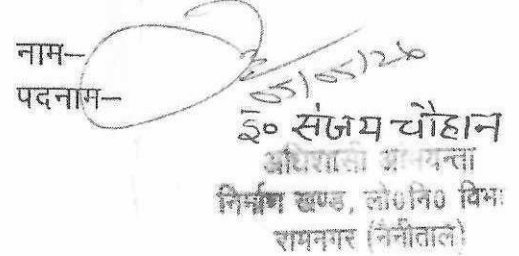 नाम–
पदनाम–
05/05/26
ई० संजय चौहान
अधिशासी अभियन्ता
निर्माण खण्ड, लो०नि० विभा
रामनगर (नैनीताल)